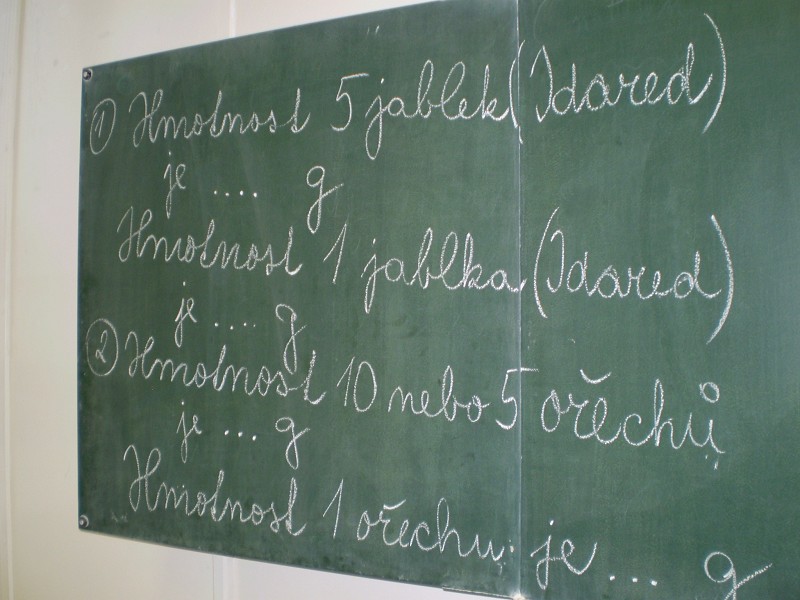 ① Hmotnost 5 jablek (Idared)
je .... g
Hmotnost 1 jablka (Idared)
je .... g
② Hmotnost 10 nebo 5 ořechů
je ... g
Hmotnost 1 ořechu je ... g